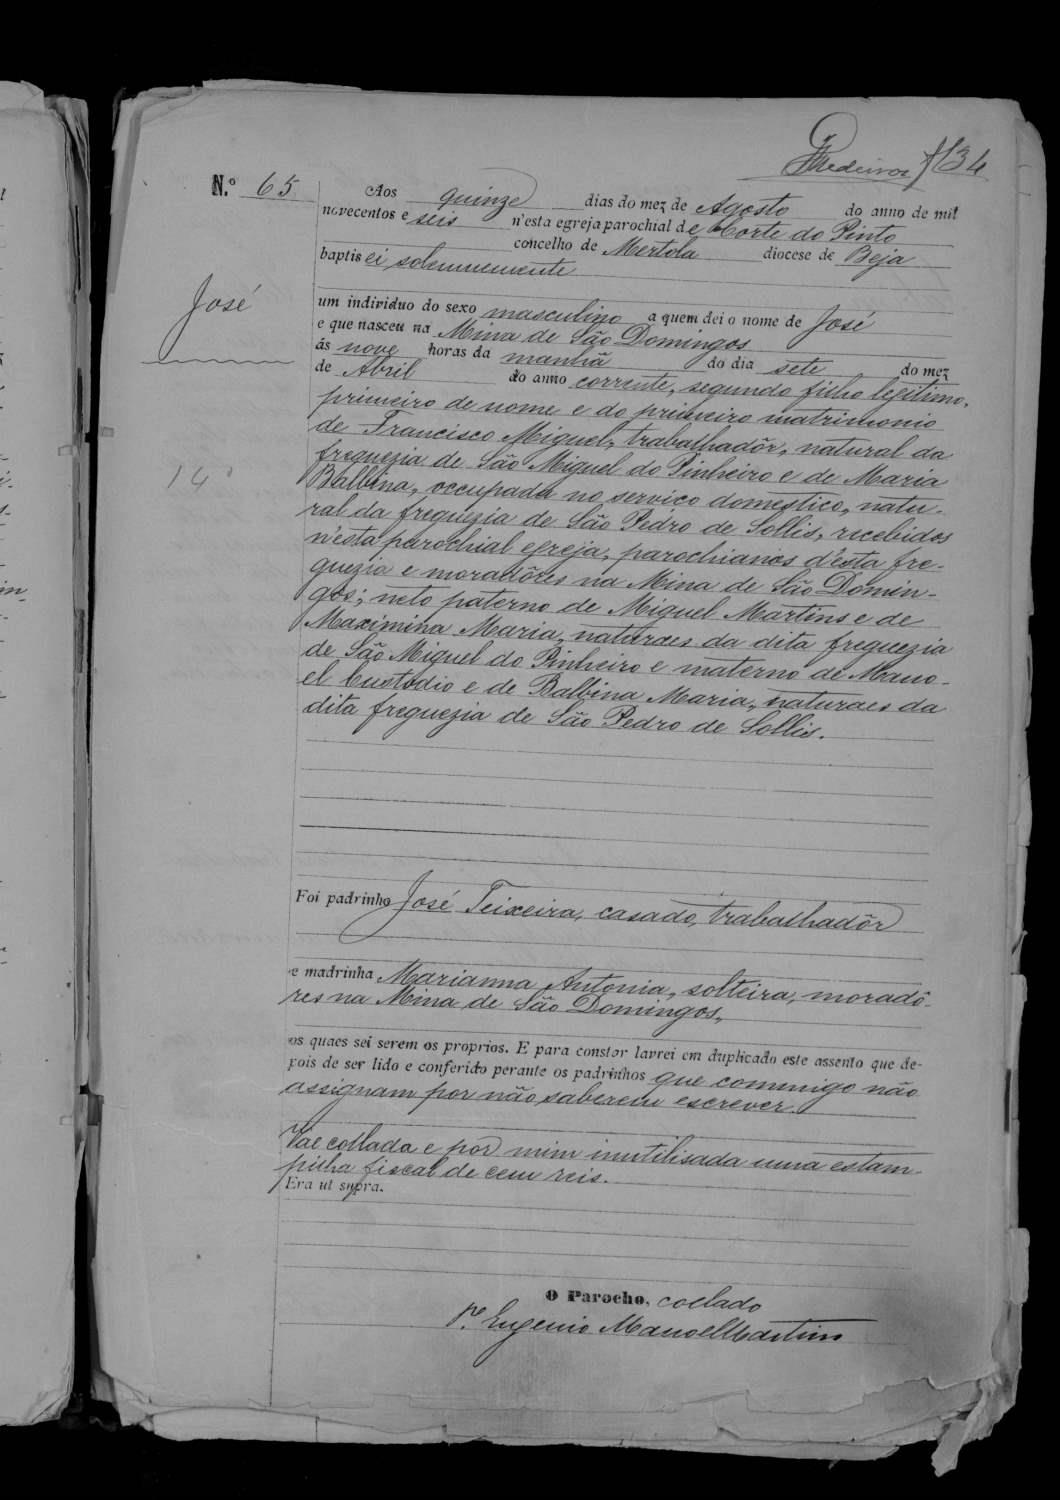 Medeiros f 34
N.º 65
Aos quinze dias do mez de Agosto do anno de mil
novecentos e seis n'esta egreja parochial de Corte do Pinto
concelho de Mertola diocese de Beja
baptisei solemnemente
José
um individuo do sexo masculino a quem dei o nome de José
e que nasceu na Mina de São Domingos
ás nove horas da manhã do dia sete do mez
de Abril do anno corrente, segundo filho legitimo,
primeiro de nome e do primeiro matrimonio
de Francisco Miguel, trabalhadôr, natural da
freguezia de São Miguel do Pinheiro e de Maria
Balbina, occupada no serviço domestico, natu-
14º
ral da freguezia de São Pedro de Sollis, recebidos
n'esta parochial egreja, parochianos d'esta fre-
guezia e moradôres na Mina de São Domin-
gos; neto paterno de Miguel Martins e de
Maximina Maria, naturaes da dita freguezia
de São Miguel do Pinheiro e materno de Mano-
el Custodio e de Balbina Maria, naturaes da
dita freguezia de São Pedro de Sollis.
Foi padrinho José Teixeira, casado, trabalhadôr
e madrinha Marianna Antonia, solteira, moradô-
res na Mina de São Domingos,
os quaes sei serem os proprios. E para constar lavrei em duplicado este assento que de-
pois de ser lido e conferido perante os padrinhos que commigo não
assignam por não saberem escrever.
Vae collada e por mim inutilisada uma estam-
pilha fiscal de cem reis.
Era ut supra.
O Parocho, collado
P.e Eugenio Manoel Martins